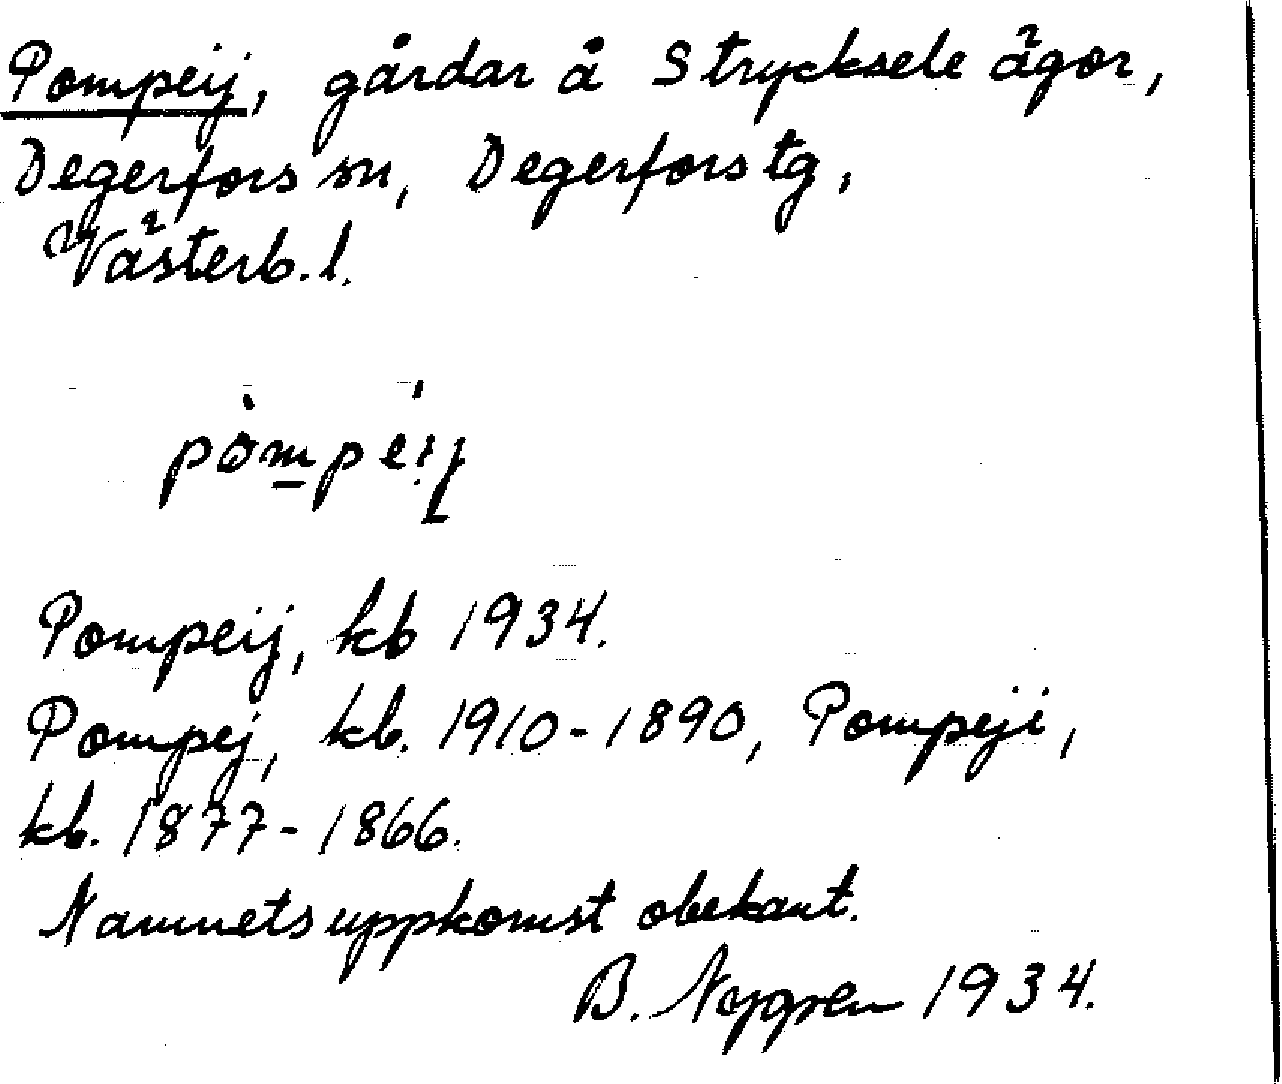 Pompeij, gårdar å Strycksele ägor,
Degerfors sn, Degerfors tg,
Västerb. l.
pòmpéịj
Pompeij, kb 1934.
Pompej, kb. 1910-1890, Pompeji,
kb. 1877-1866.
Namnets uppkomst obekant.
B. Nygren 1934.